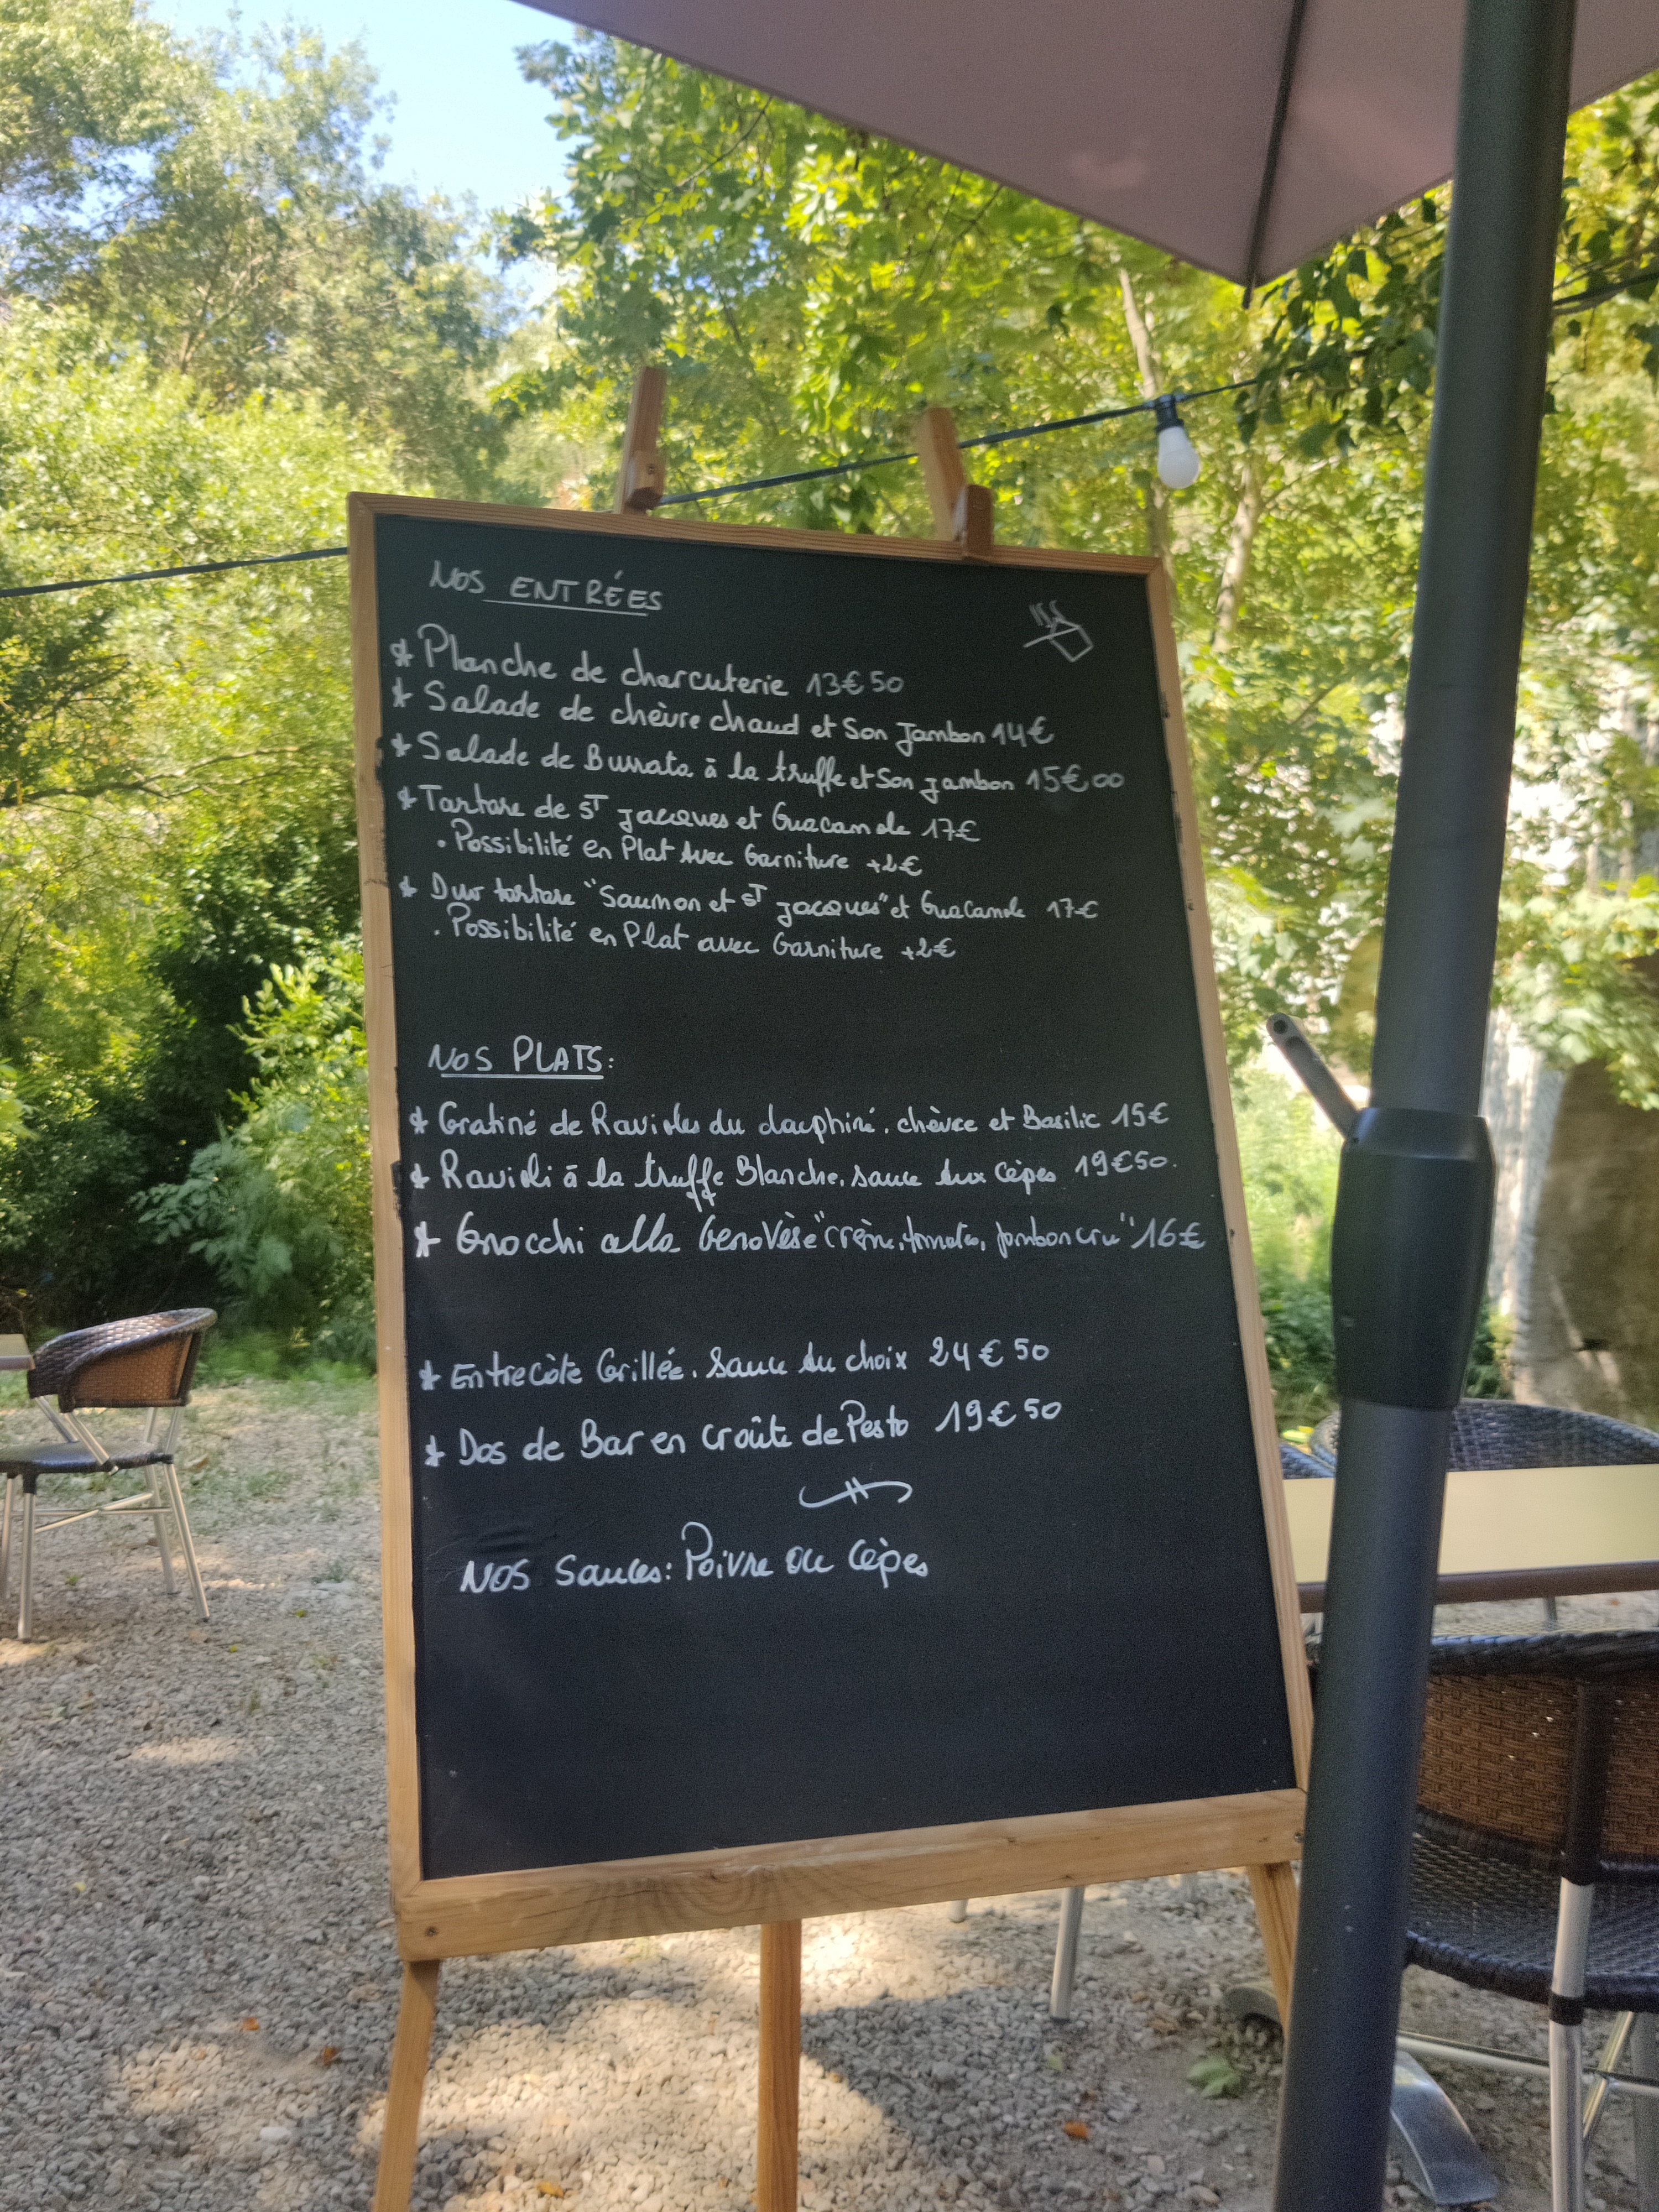 NOS ENTRÉES
* Planche de charcuterie 13€50
* Salade de chèvre chaud et Son Jambon 14€
* Salade de Burrata à la truffe et Son jambon 15€00
* Tartare de ST Jacques et Guacamole 17€
. Possibilité en Plat Avec Garniture +2€
* Duo tartare "Saumon et ST jacques" et Guacamole 17€
. Possibilité en Plat avec Garniture +2€
NOS PLATS:
* Gratiné de Ravioles du dauphiné, chèvre et Basilic 15€
* Ravioli à la truffe Blanche, sauce Aux Cèpes 19€50.
* Gnocchi alla Genovèse "crème, tomates, jambon cru" 16€
* Entrecôte Grillée, Sauce Au choix 24€50
* Dos de Bar en croûte de Pesto 19€50
NOS Sauces: Poivre ou Cèpes